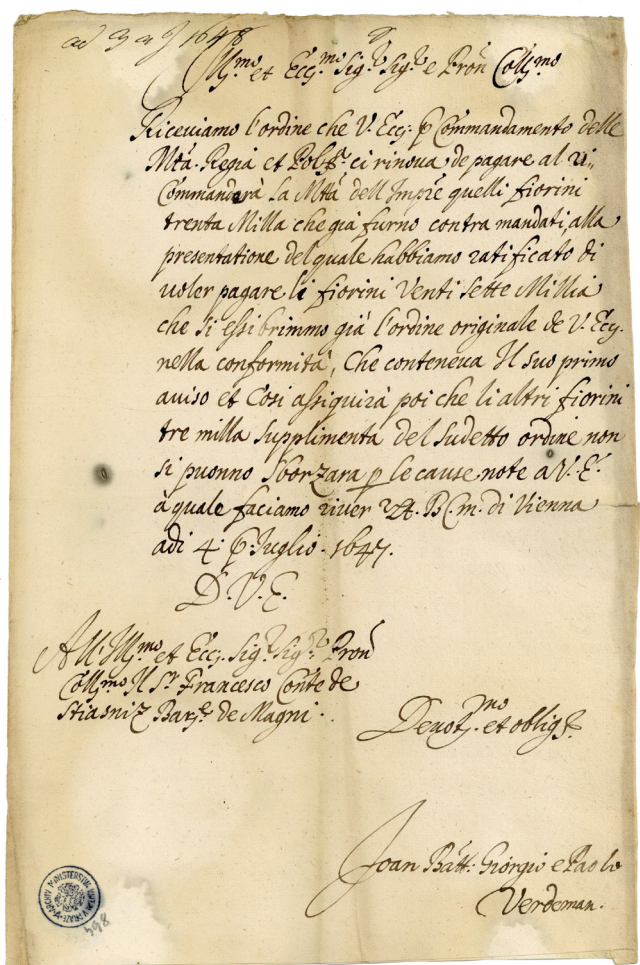 ad 3 a J 1648
Ill.mo et Ecc.mo Sig.r Sig.r e Pron Coll.mo
Riceviamo l'ordine che V. Ecc. p Commandamento delle
Mtà. Regia et Pob. ci rinova de pagare al
Commanderà la Mtà dell Impre quelli fiorini
trenta Milla che già furno contra mandati, alla
presentatione del quale habbiamo ratificato di
voler pagare li fiorini Venti Sette Millia
che si essibrimmo già l'ordine originale de V. Ecc.
nella conformità, Che conteneva Il suo primo
aviso et Cosi assiquirà poi che li altri fiorini
tre milla Supplimenta del Sudetto ordine non
si puonno Sborzara p le cause note a V. E.
a quale faciamo river B.C.m. di Vienna
adi 4: Juglio. 1647.
D. V. E.
All. Ill.mo et Ecc. Sig.r Sig.r Pron
Coll.mo Il Sr. Francesco Conte de
Strasniz Bar. de Magni.
Devot.mo et oblig.
Joan Batt: Giorgio e Paolo
Verdeman.
ARCHIV MINISTERSTVA VNITRA V PRAZE
398